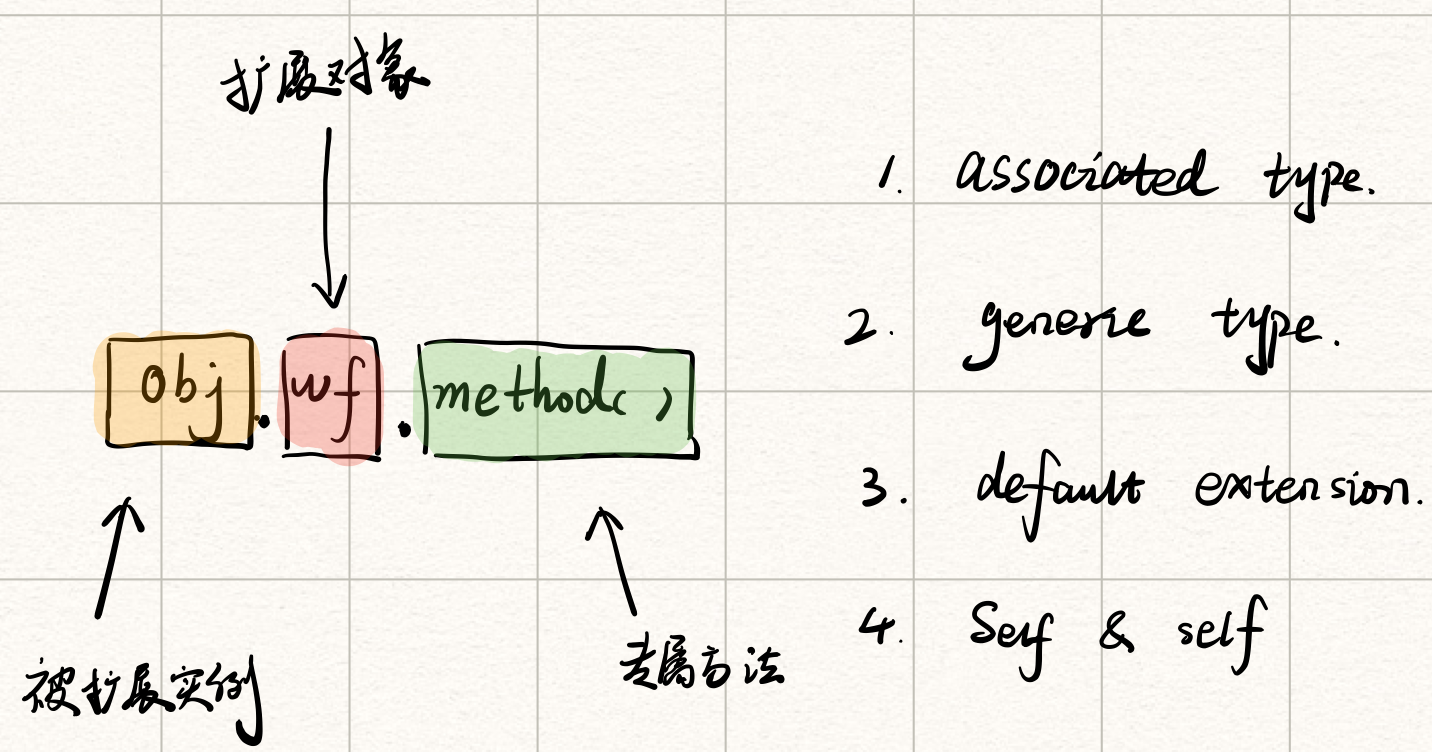 扩展对象
obj.wf.method()
被扩展实例
专属方法
1. associated type.
2. generic type.
3. default extension.
4. Self & self